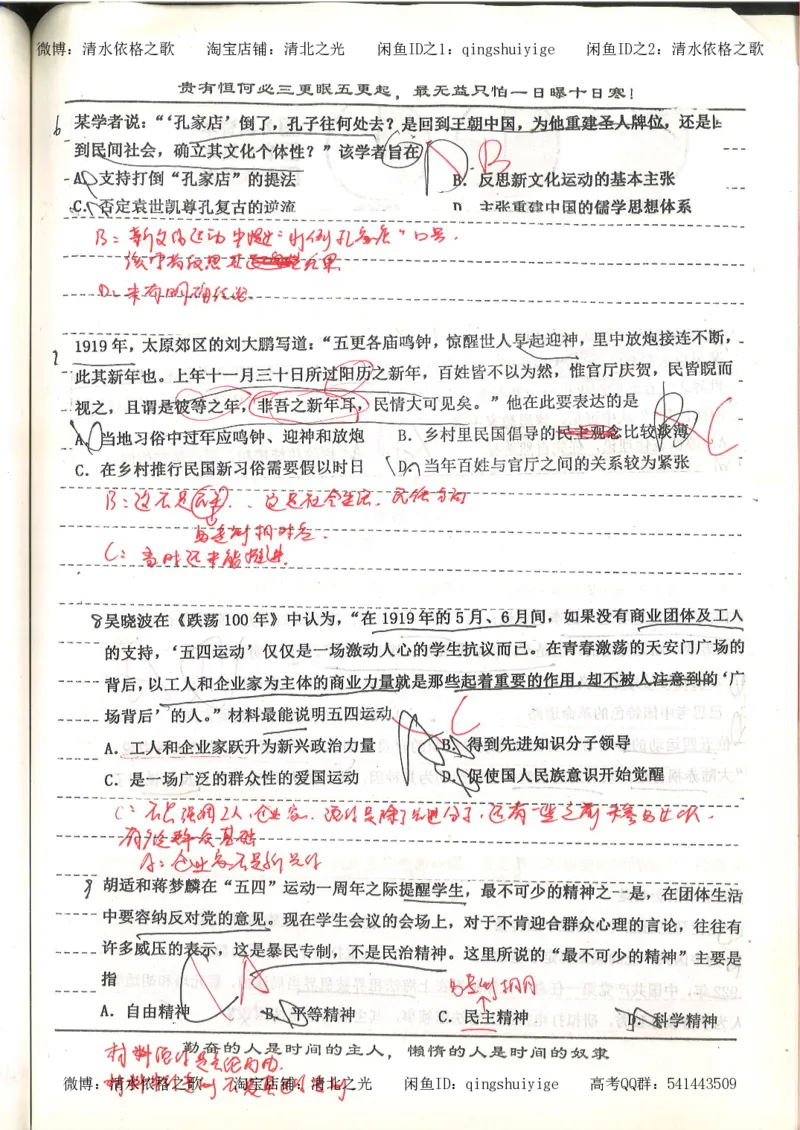 微博：清水依格之歌 淘宝店铺：清北之光 闲鱼ID之1：qingshuiyige 闲鱼ID之2：清水依格之歌
贵有恒何必三更眠五更起，最无益只怕一日曝十日寒！
6 某学者说：“‘孔家店’倒了，孔子往何处去？是回到王朝中国，为他重建圣人牌位，还是
到民间社会，确立其文化个体性？”该学者旨在
B
A．支持打倒“孔家店”的提法 B．反思新文化运动的基本主张
C．否定袁世凯尊孔复古的逆流 D．主张重建中国的儒学思想体系
B：新文化运动中提出“打倒孔家店”口号．
该学者反思其后果
D：未有明确
1919年，太原郊区的刘大鹏写道：“五更各庙鸣钟，惊醒世人早起迎神，里中放炮接连不断，
此其新年也。上年十一月三十日所过阳历之新年，百姓皆不以为然，惟官厅庆贺，民皆睨而
视之，且谓是彼等之年，非吾之新年耳，民情大可见矣。”他在此要表达的是
C
A．当地习俗中过年应鸣钟、迎神和放炮 B．乡村里民国倡导的民主观念比较淡薄
C．在乡村推行民国新习俗需要假以时日 D．当年百姓与官厅之间的关系较为紧张
B：这不是民主．这是社会生活．民俗方面
C：当时还未能推进
8 吴晓波在《跌荡100年》中认为，“在1919年的5月、6月间，如果没有商业团体及工人
的支持，‘五四运动’仅仅是一场激动人心的学生抗议而已。在青春激荡的天安门广场的
背后，以工人和企业家为主体的商业力量就是那些起着重要的作用，却不被人注意到的‘广
场背后’的人。”材料最能说明五四运动
C
A．工人和企业家跃升为新兴政治力量 B．得到先进知识分子领导
C．是一场广泛的群众性的爱国运动 D．促使国人民族意识开始觉醒
有广泛群众基础
A：企业家不是新兴
9 胡适和蒋梦麟在“五四”运动一周年之际提醒学生，最不可少的精神之一是，在团体生活
中要容纳反对党的意见。现在学生会议的会场上，对于不肯迎合群众心理的言论，往往有
许多威压的表示，这是暴民专制，不是民治精神。这里所说的“最不可少的精神”主要是
指
A
A．自由精神 B．平等精神 C．民主精神 D．科学精神
勤奋的人是时间的主人，懒惰的人是时间的奴隶
微博：清水依格之歌 淘宝店铺：清北之光 闲鱼ID：qingshuiyige 高考QQ群：541443509